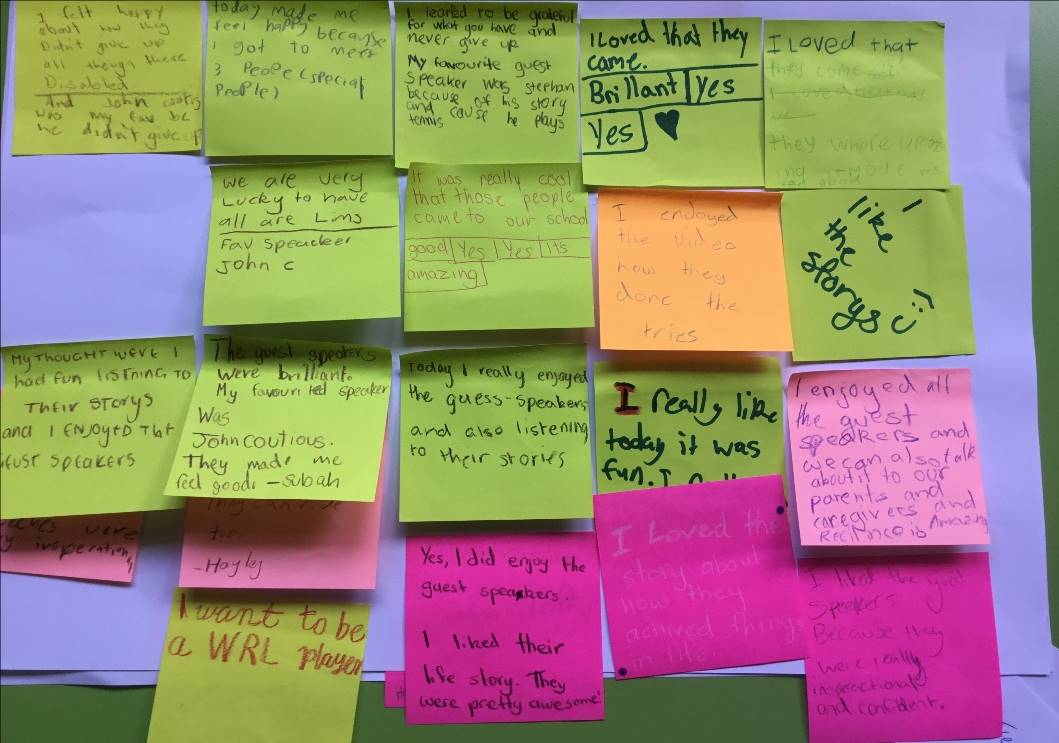 I felt happy
about how they
Didn't give up
all though there
Disabled
And John
was my fav be
he didn't give up
today made me
feel happy because
I got to meet
3 People (special
People)
I leared to be grateful
for what you have and
never give up
My favourite guest
Speaker was stephan
because of his story
and cause he plays
tennis
I Loved that they
came.
Brillant Yes
Yes
I Loved that
they came
they where amaz
ing
we are very
Lucky to have
all are Lims
Fav speacker
John C
It was really cool
that those people
came to our school
good Yes Yes it's
amazing
I enjoyed
the video
how they
done the
tries
I
like
the
storys
My THOUGHT WERE I
had fun LISTNING TO
THEIR STORYS
and I ENJOYED THAT
GEUST SPEAKERS
The guest speakers
were brilliant.
My favourited speaker
Was
John coutious.
They made me
feel good. - Subah
Today I really enjoyed
the guess-speakers
and also listening
to their stories
I really like
today it was
fun. I
I enjoyed all
the guest
speakers and
we can also talk
about it to our
parents and
caregivers and
Recilince is Amazing
were
insperation
they can ride
too
-Hayley
I want to be
a WRL player
Yes, I did enjoy the
guest speakers.
I liked their
life story. They
were pretty awesome!
I Loved the
story about
how they
achived things
in life.
I liked the guest
Speakers
Because they
were really
inspactional
and confident.